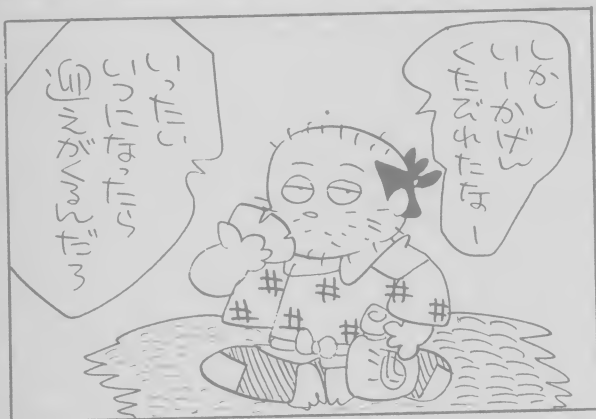 しかし
いーかげん
くたびれたなー
いったい
いつになったら
迎えがくるんだろ